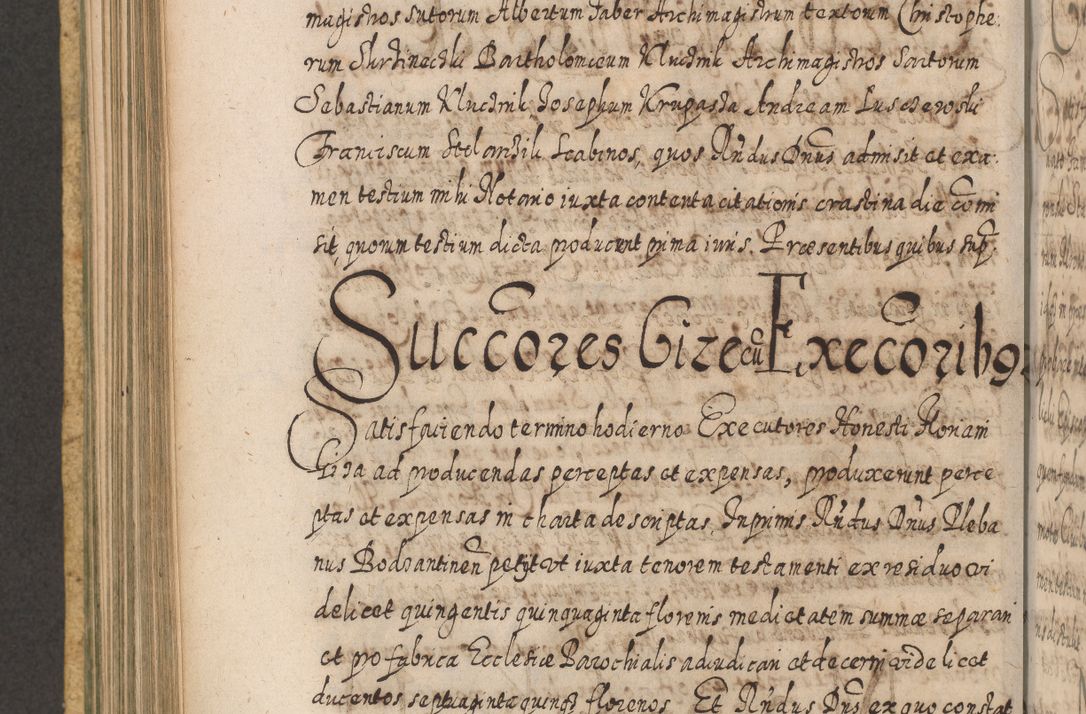 magistros sutorum Albertum Faber Archimagistrum textorum Christophe:
rum Skrzinechki Bartholomæum Kluchnik Archimagistros Sartorum
Sebastianum Kluchnik, Josephum Krupasza Andream
Franciscum Scabinos, quos Rñdus Dñus admisit et exa:
men testium mihi Notario iuxta contenta citationis crastina die com̃i
sit, quorum testium dicta producent prima iuris. Præsentibus quibus sup̃:
Succ̃ores Gize cũ Exec̃oribq
Satisfaciendo termino hodierno Executores Honesti Floriani
Giza ad producendas perceptas et expensas, produxerunt perce
ptas et expensas in charta descriptas, Inprimis Rñdus Dñus Pleba
nus Bodzantineñ petijt vt iuxta tenorem testamenti ex residuo vi
delicet quingentis quinquaginta florenis medietatem summæ separari
et pro fabrica Ecclesiæ Parochialis adiudicari et decerni videlicet
ducentos septuaginta quinq florenos Et Rñdus Dñs ex quo constat